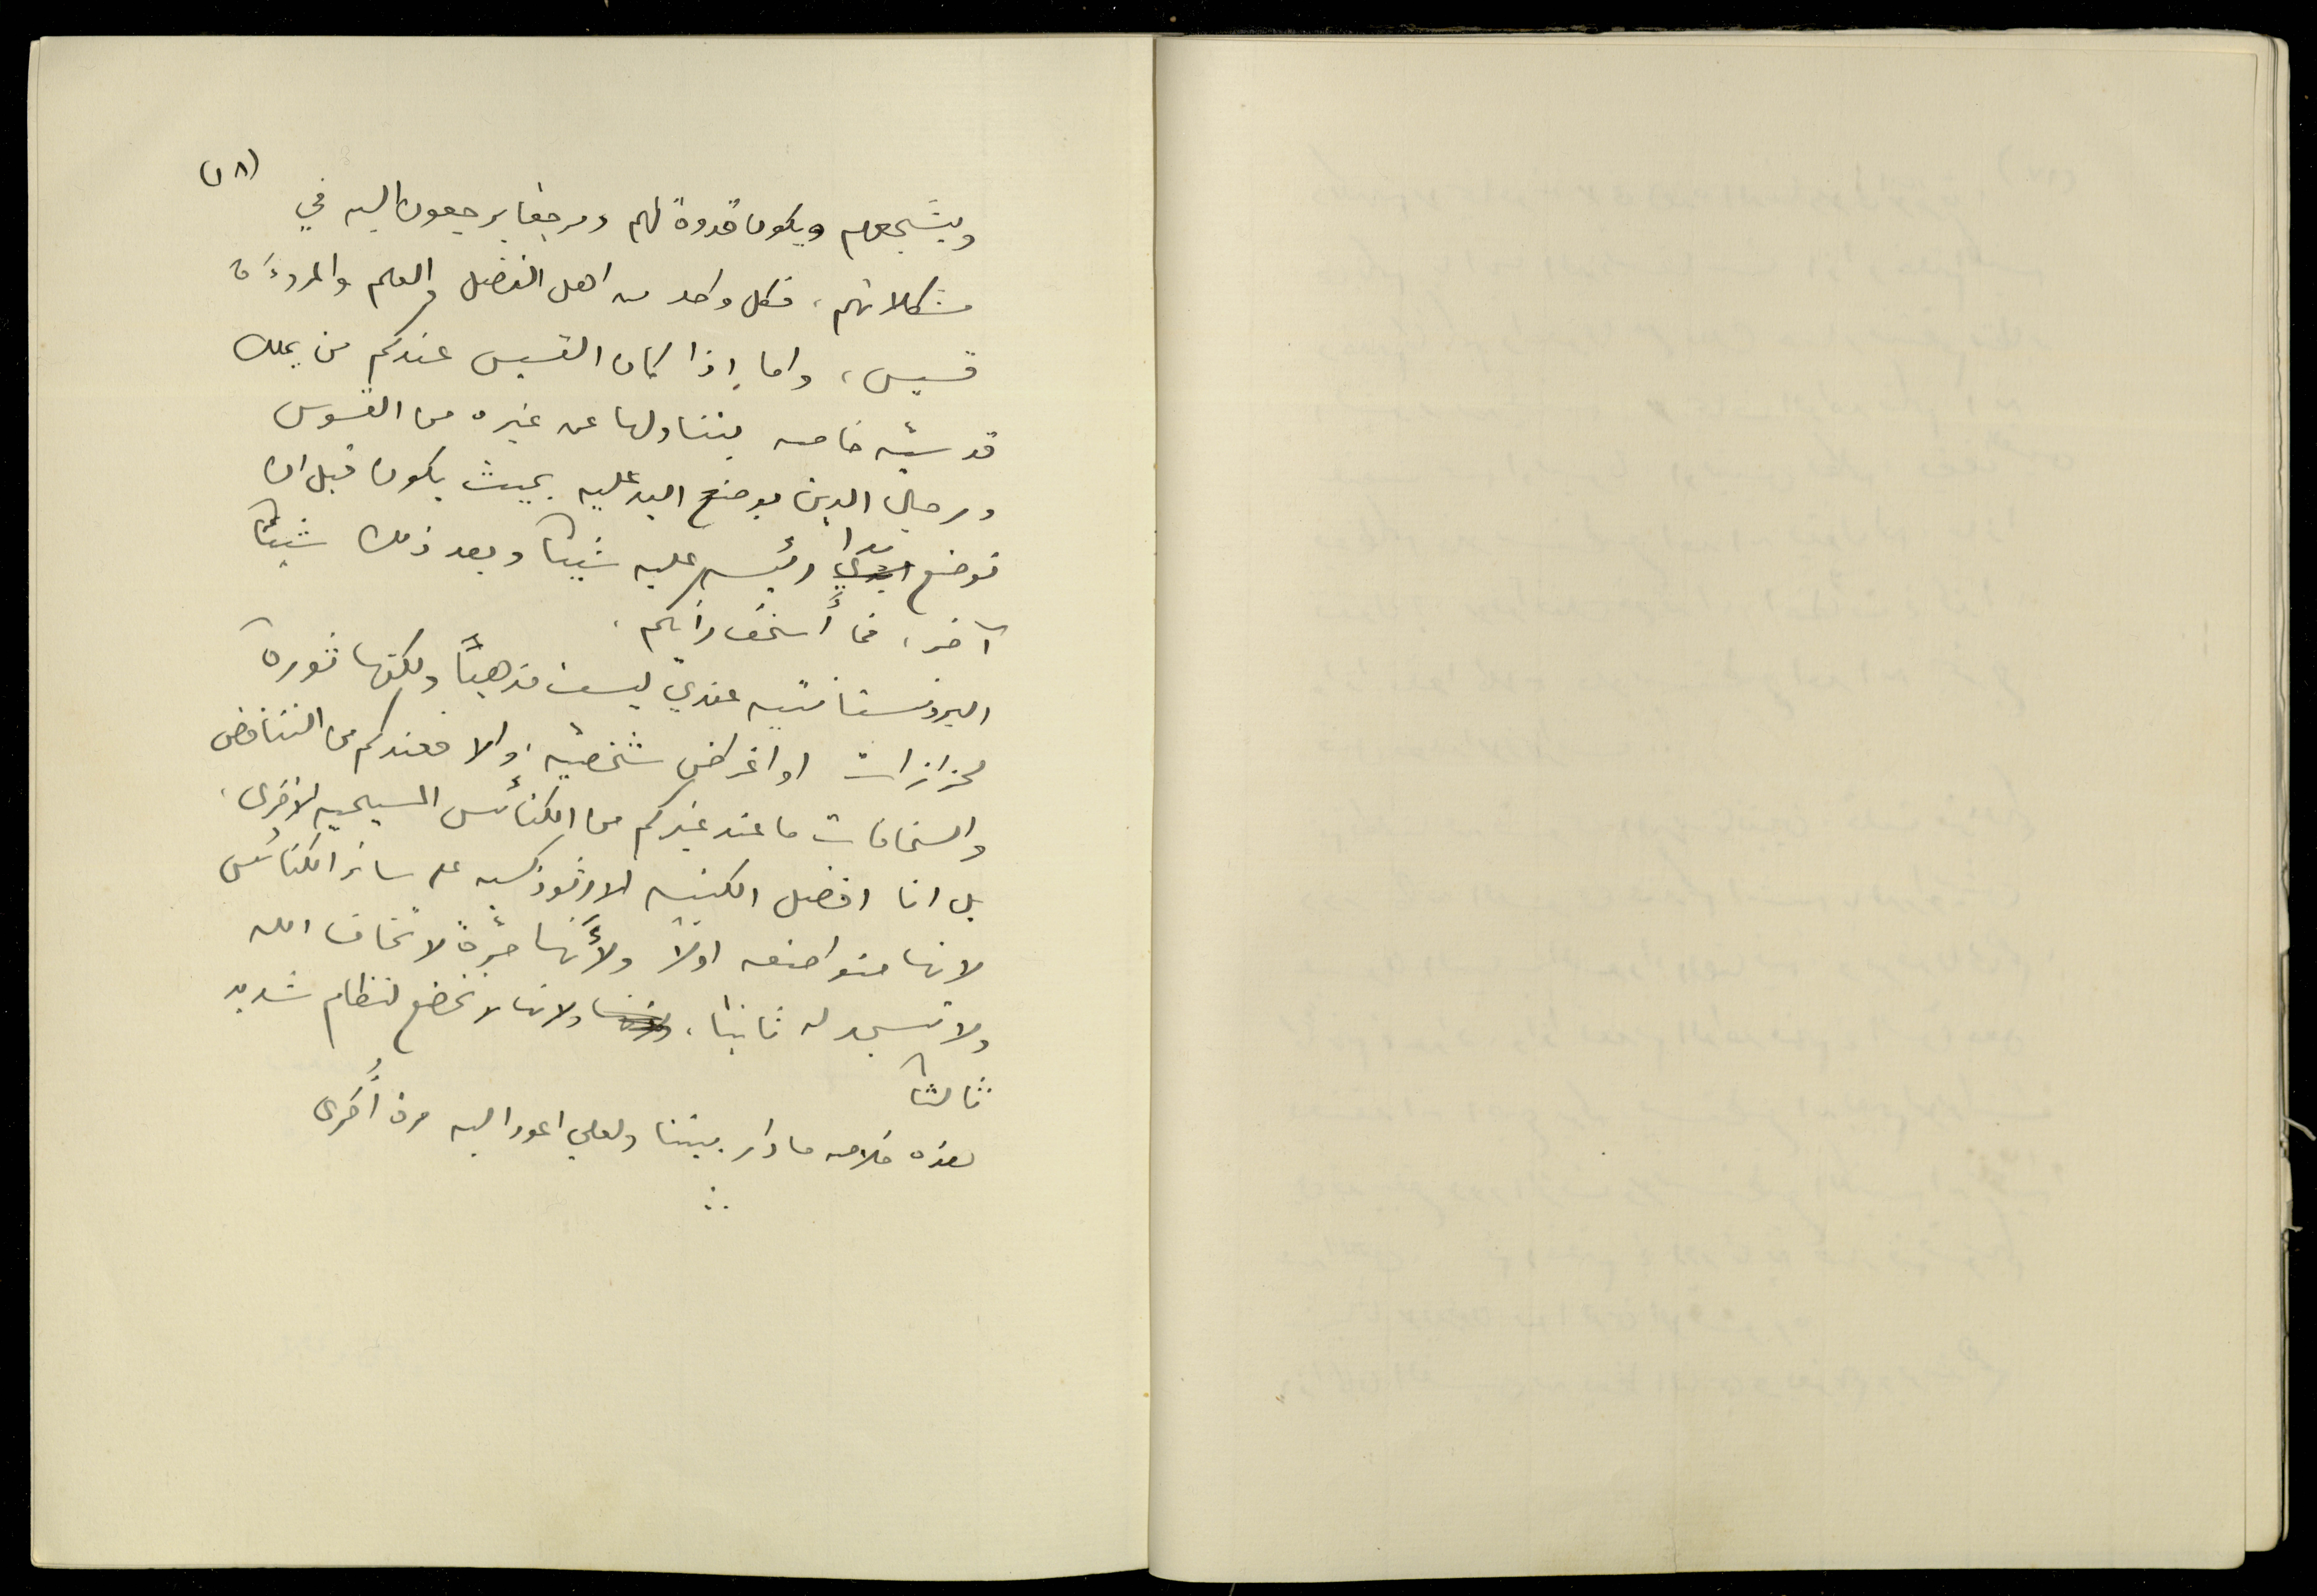 (٢٨)
ويشجعهم ويكون قدوةً لهم ومرجعًا يرجعون اليه في
مشكلاتهم، فكل واحد من اهل الفضل والعلم والمروءَة
قسيس، واما إذا كان القسيس عندكم من يملك
قدسيّه خاصه يتناولها عن غيره من القسوس
ورجال الدين بوضع اليد عليه بحيث يكون قبل ان
توضع يدا رئيسه عليه شيئاً وبعد ذلك شيئاً
آخر، فما أَسخفَ رأيكم.
البروتستانتيه عندي ليست مذهباً ولكنها ثورة
لحزازات او اغراض شخصيّه، والا فعندكم من التناقض
والسخافات ما عند غيركم من الكنائس المسيحيه الاخرى،
بل انا افضل الكنيسه الارثوذكسيه على سائر الكنائس
لانها متواضعه اولاً ولأَنها حُرَّةً لا تخاف الله
ولا تسجد له ثانيا، ولانها لا تخضع لنظام شديد
ثالثاً
هذه خلاصه ما دار بيننا ولعلي اعود اليه مرة أُخرى